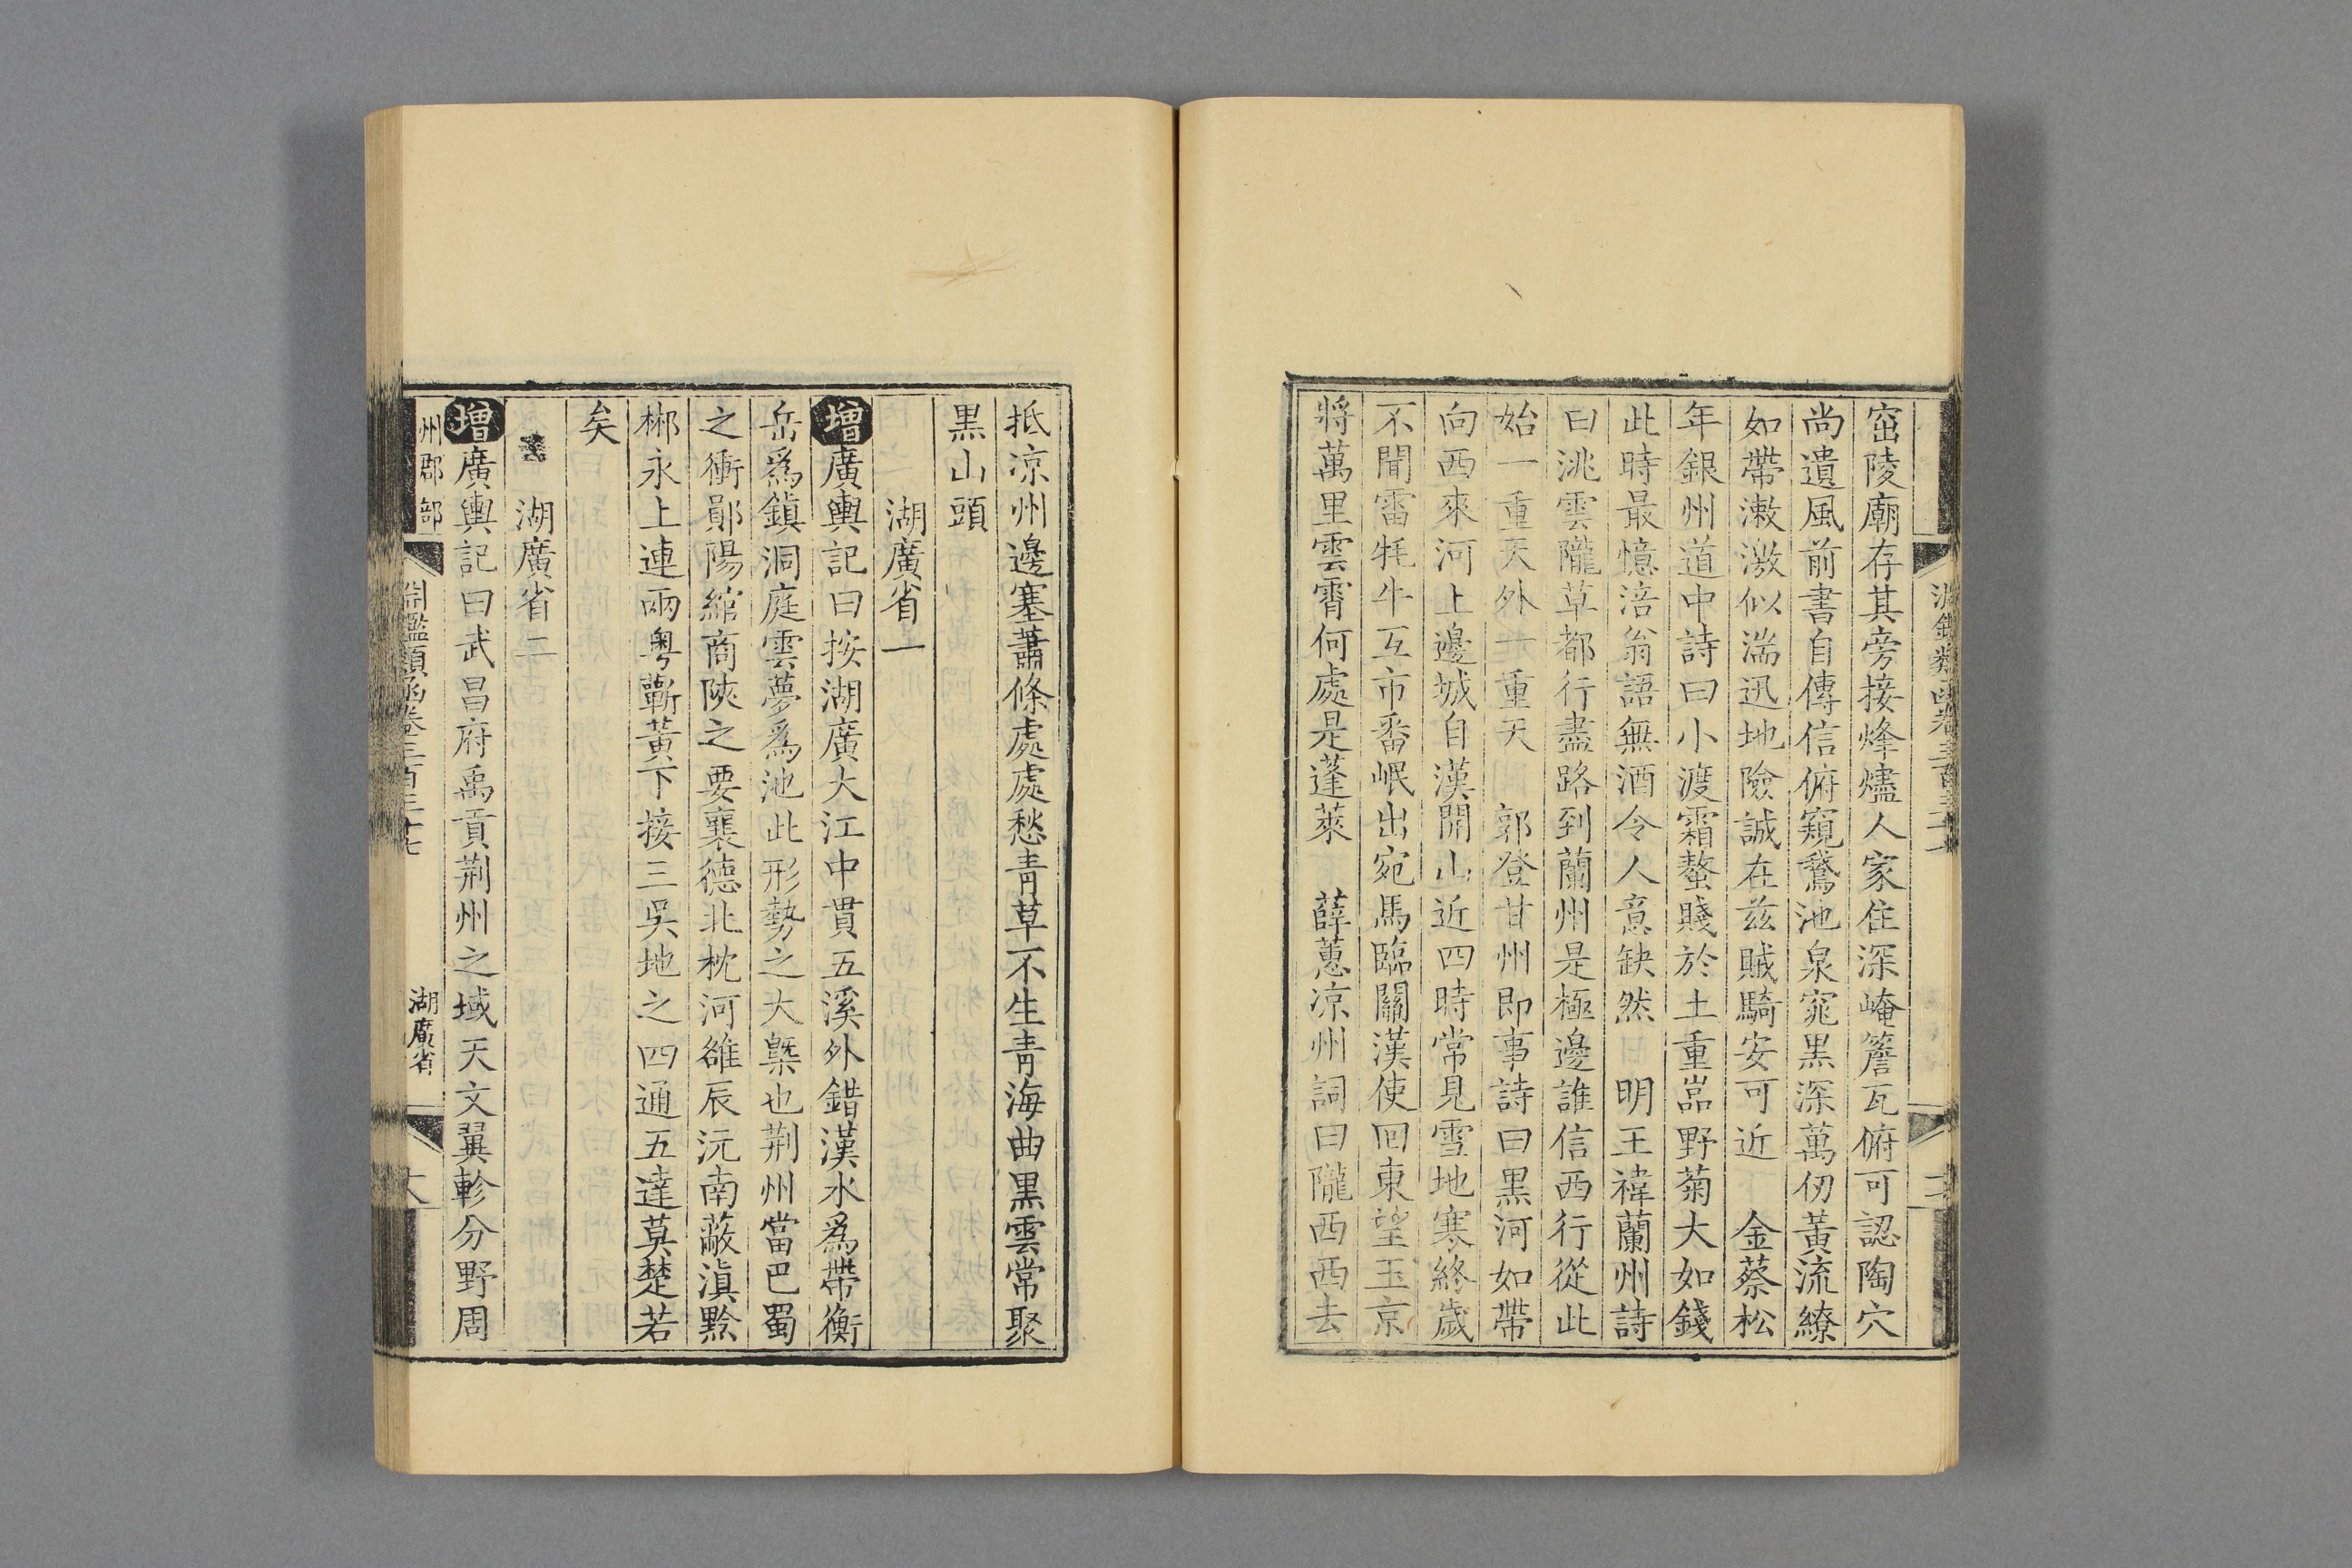 窑陵廟存其旁接烽燼人家住深崦簷瓦俯可認陶穴
尚遺風前書自傳信俯窺鵞池泉窕黒深萬仞黃流繚
如帶漱激似湍迅地險誠在兹賊騎安可近　金蔡松
年銀州道中詩曰小渡霜螯賤於土重嵓野菊大如錢
此時最憶涪翁語無酒令人意缺然　明王褘蘭州詩
曰洮雲隴草都行盡路到蘭州是極邊誰信西行從此
始一重天外一重天　郭登甘州即事詩曰黒河如帶
向西來河上邊城自漢開山近四時常見雪地寒終歲
不聞雷牦牛互市番岷出宛馬臨關漢使回東望玉京
將萬里雲霄何處是蓬萊　薛蕙凉州詞曰隴西西去
抵凉州邊塞蕭條處處愁青草不生青海曲黒雲常聚
黒山頭
湖廣省一
增廣輿記曰按湖廣大江中貫五溪外錯漢水爲帶衡
岳爲鎮洞庭雲夢爲池此形勢之大槩也荆州當巴蜀
之衝鄖陽綰商陜之要襄德北枕河雒辰沅南蔽滇黔
郴永上連兩粤蘄黃下接三吳地之四通五達莫楚若
矣
湖廣省二
增廣輿記曰武昌府禹貢荆州之域天文翼軫分野周
州郡部
淵鑑類函卷三百三十七
湖廣省